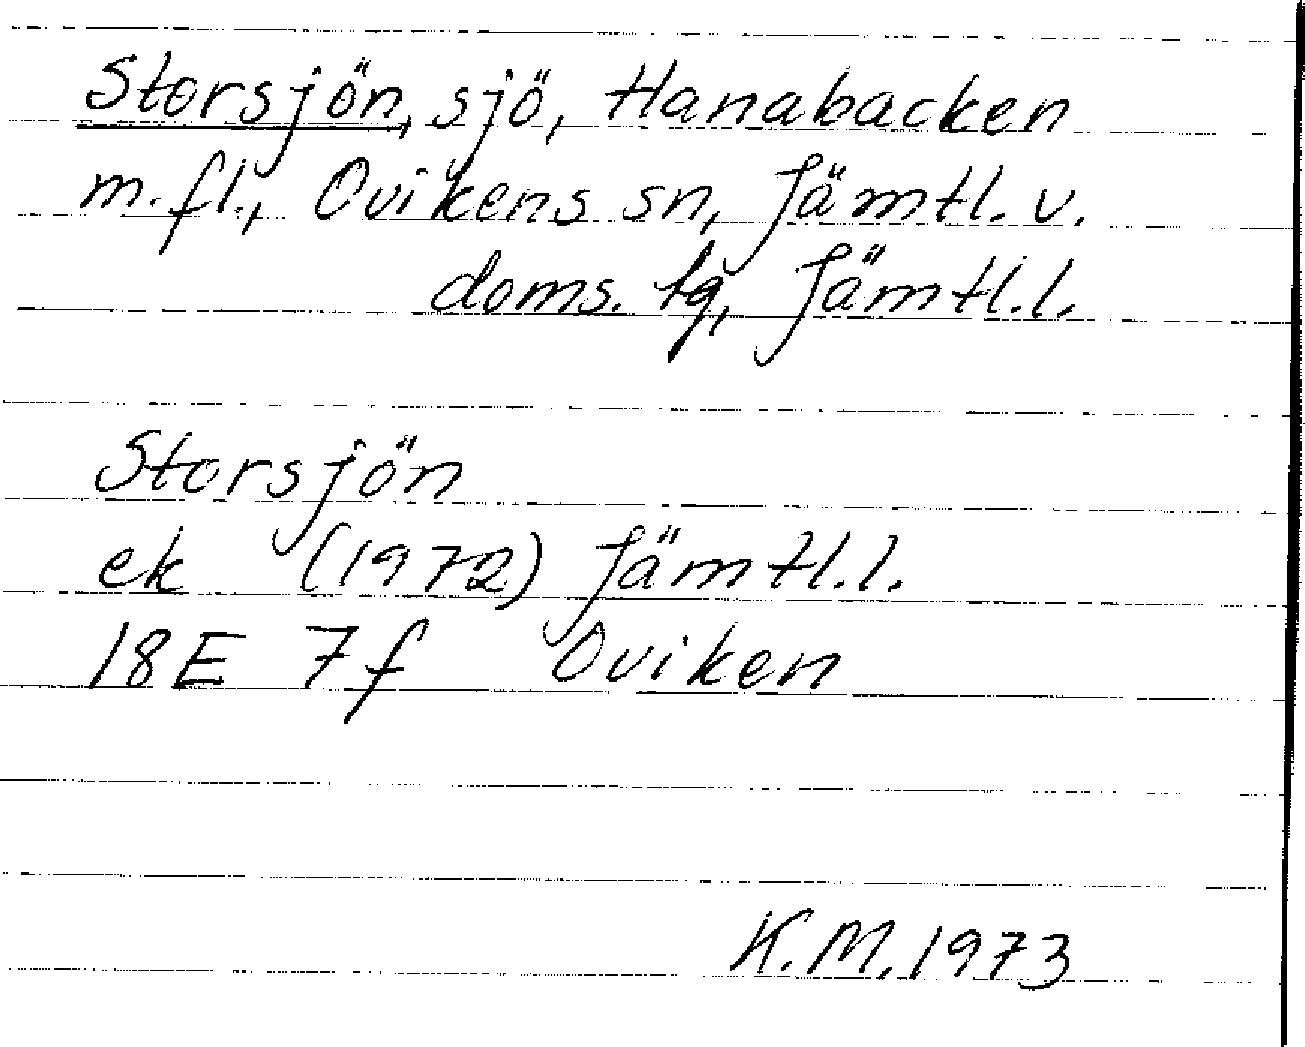 Storsjön, sjö, Hanabacken
m.fl., Ovikens sn, Jämtl. v.
doms. tg, Jämtl.l.
Storsjön
ek (1972) Jämtl.l.
18E 7f Oviken
K.M. 1973